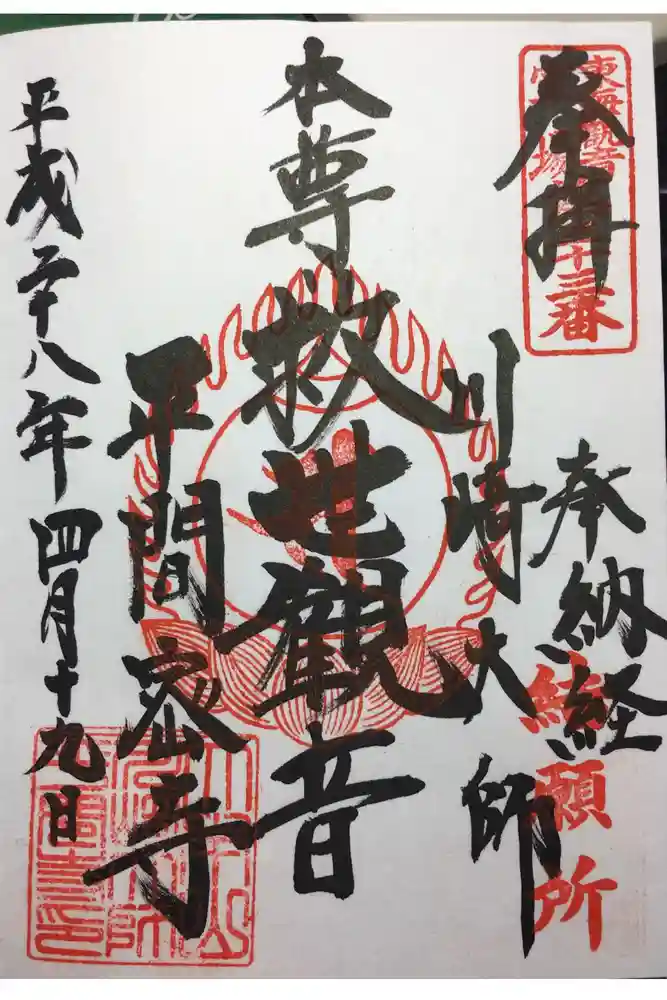 奉拝
東海觀音
十三番
奉納経
結願所
川崎大師
本尊救世観音
平間密寺
平成二十八年四月十九日